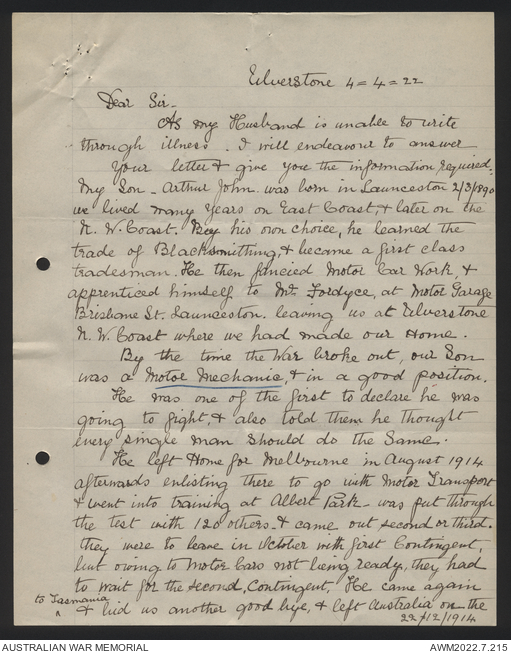 Ulverstone 4=4=22
Dear Sir-
As my Husband is unable to write
through illness. I will endeavour to answer
your letter & give you the information required.
My Son - Arthur John was born in Launceston 2/3/890
we lived many years on East Coast, & later on the
N. W. Coast. By his own choice, he learned the
trade of Blacksmithing, & became a first class
tradesman. He then fancied Motor Car Work, &
apprenticed himself to Mr. Fordyce, at Motor Garage
Brisbane St. Launceston. leaving us at Ulverstone
N. W. Coast where we had made our Home.
By the time the War broke out, our Son
was a Motor Mechanic, & in a good position.
He was one of the first to declare he was
going to fight, & also told them he thought
every single man should do the Same.
He left Home for Melbourne in August 1914
afterwards enlisting there to go with Motor Transport
& went into training at Albert Park - was put through
the test with 120 others. & came out second or third.
they were to leave in October with first Contingent,
but owing to Motor Cars not being ready, they had
to wait for the second, Contingent. He came again
to Tasmania
^ & bid us another good bye, & left Australia on the
22/12/1914
AUSTRALIAN WAR MEMORIAL
AWM2022.7.215